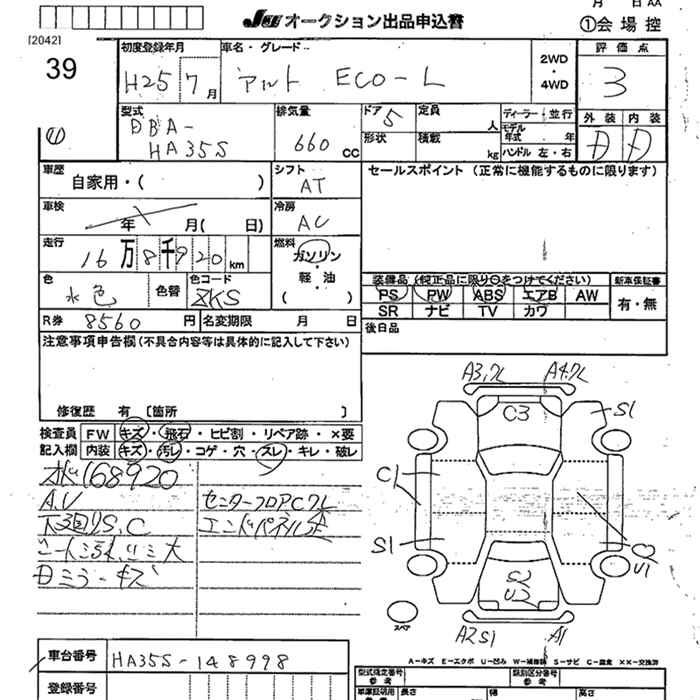 月 日 AA
JU オークション出品申込書
①会場控
[2042]
39
初度登録年月
H25 7月
車名・グレード
アルト ECO-L
2WD・4WD
評価点
3
型式
DBA-
HA35S
排気量
660 cc
ドア 5
形状
定員 人
積載 kg
ディーラー・並行
モデル年式 年
ハンドル 左・右
外装 内装
D D
車歴
自家用・( )
シフト
AT
セールスポイント (正常に機能するものに限ります)
車検
年 月( 日)
冷房
AC
走行
16万8千920km
燃料
ガソリン・軽油
( )
色
水色
色替
色コード
ZKS
装備品(純正品に限り○をつけてください)
PS PW ABS エアB AW
SR ナビ TV カワ
新車保証書
有・無
R券 8560円
名変期限 月 日
後日品
注意事項申告欄(不具合内容等は具体的に記入して下さい)
修復歴 有 [箇所 ]
検査員
記入欄
FW キズ・飛石・ヒビ割・リペア跡・×要
内装 キズ・汚レ・コゲ・穴・スレ・キレ・破レ
168920
A.U
下廻りS.C
シートシミ大
キズ
センターフロアCクレ
エンドパネル歪
A3,クレ
A4クレ
C3
S1
C1
S1
U1
S2
U2
A2S1
A1
スペア
A-キズ E-エクボ U-凹み W-補修跡 S-サビ C-腐食 ××-交換済
車台番号
HA35S-148998
登録番号
型式指定番号
参考
類別区分番号
参考
車庫証明用
参考
長さ
幅
高さ